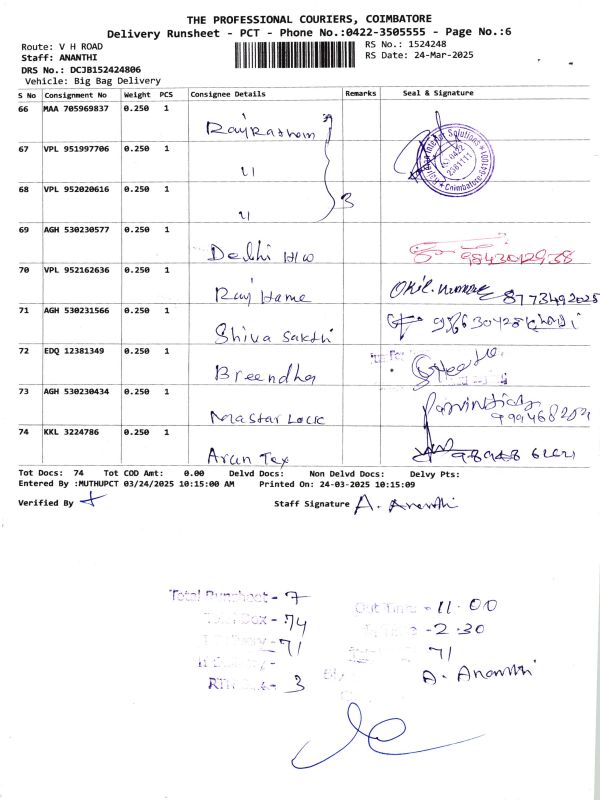 THE PROFESSIONAL COURIERS, COIMBATORE
Delivery Runsheet - PCT - Phone No.:0422-3505555 - Page No.:6
Route: V H ROAD
RS No.: 1524248
Staff: ANANTHI
RS Date: 24-Mar-2025
DRS No.: DCJB152424806
Vehicle: Big Bag Delivery
S No Consignment No Weight PCS Consignee Details Remarks Seal & Signature
66 MAA 705969837 0.250 1
67 VPL 951997706 0.250 1 11
68 VPL 952020616 0.250 1 11 3
69 AGH 530230577 0.250 1 Delhi H/W
70 VPL 952162636 0.250 1 Raj Home
71 AGH 530231566 0.250 1 Shiva Sakthi
72 EDQ 12381349 0.250 1 Breendha
73 AGH 530230434 0.250 1 Mastar Lock
74 KKL 3224786 0.250 1 Arun Tex
Tot Docs: 74 Tot COD Amt: 0.00 Delvd Docs: Non Delvd Docs: Delvy Pts:
Entered By :MUTHUPCT 03/24/2025 10:15:00 AM Printed On: 24-03-2025 10:15:09
Verified By
Staff Signature A. Ananthi
Total Runsheet - 7
Out Time - 11.00
74
- 2.30
71
71
3
A. Ananthi